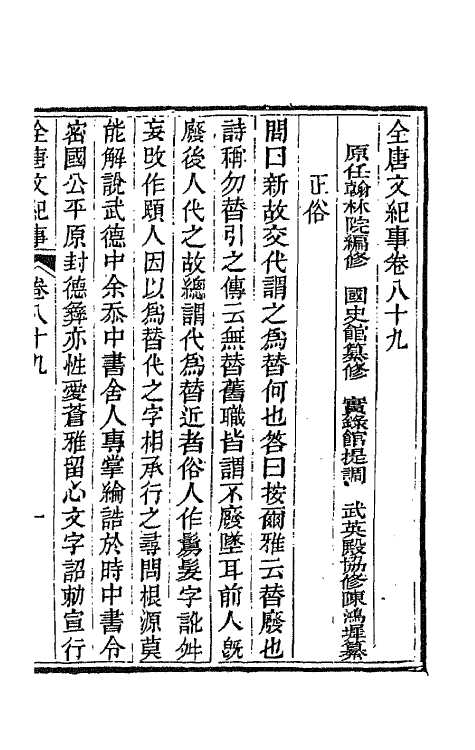 全唐文紀事卷八十九
原任翰林院編修　國史館纂修　實錄館提調　武英殿協修陳鴻墀纂
正俗
問曰新故交代謂之為替何也答曰按爾雅云替廢也
詩稱勿替引之傳云無替舊職皆謂不廢墜耳前人既
廢後人代之故總謂代為替近者俗人作鬀髮字訛舛
妄改作頭人因以為替代之字相承行之尋問根源莫
能解說武德中余忝中書舍人專掌綸誥於時中書令
密國公平原封德彝亦性愛蒼雅留心文字詔勅宣行
全唐文紀事　卷八十九　一